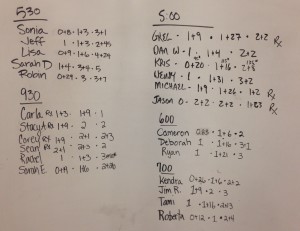 530
Sonia 0+8 · 1+3 · 3+1
Jeff 1 · 1+3 · 2+45
Lisa 0+9 · 1+6 · 4+24
Sarah D 1+4 · 3+4 · 5
Robin 0+29 · 3 · 3+7
930
Carla Rx 1+3 · 1+9 · 1
Stacy A Rx 1+9 · 2 · 2
Corey Rx 1+9 · 2+1 · 2+3
Sean Rx 2+1 · 2+3 · 2
1 · 1+3 ·
Sarah E. 0+9 · 1+6 ·
5:00
GREG - 1+9 · 1+27 · 2+2 Rx
DAN W - 1 · 1+4 · 2+2
KRIS - 0+20 · 1+16 ·
1 · 1+31 · 3+2
MICHAEL - 1+9 · 1+26 · 1+2 Rx
JASON O - 2+2 · 2+2 · 1+83 Rx
600
Cameron · 1+6 · 2
Deborah 1 · 1+16 · 3+1
Ryan 1 · 1+21 · 3
700
Kendra 0+26 · 1+6 · 2+2
Jim R. 1+9 · 2 · 3
Tami 1 · 1+16 · 2+3
Roberta 0+12 · 1 · 2+4